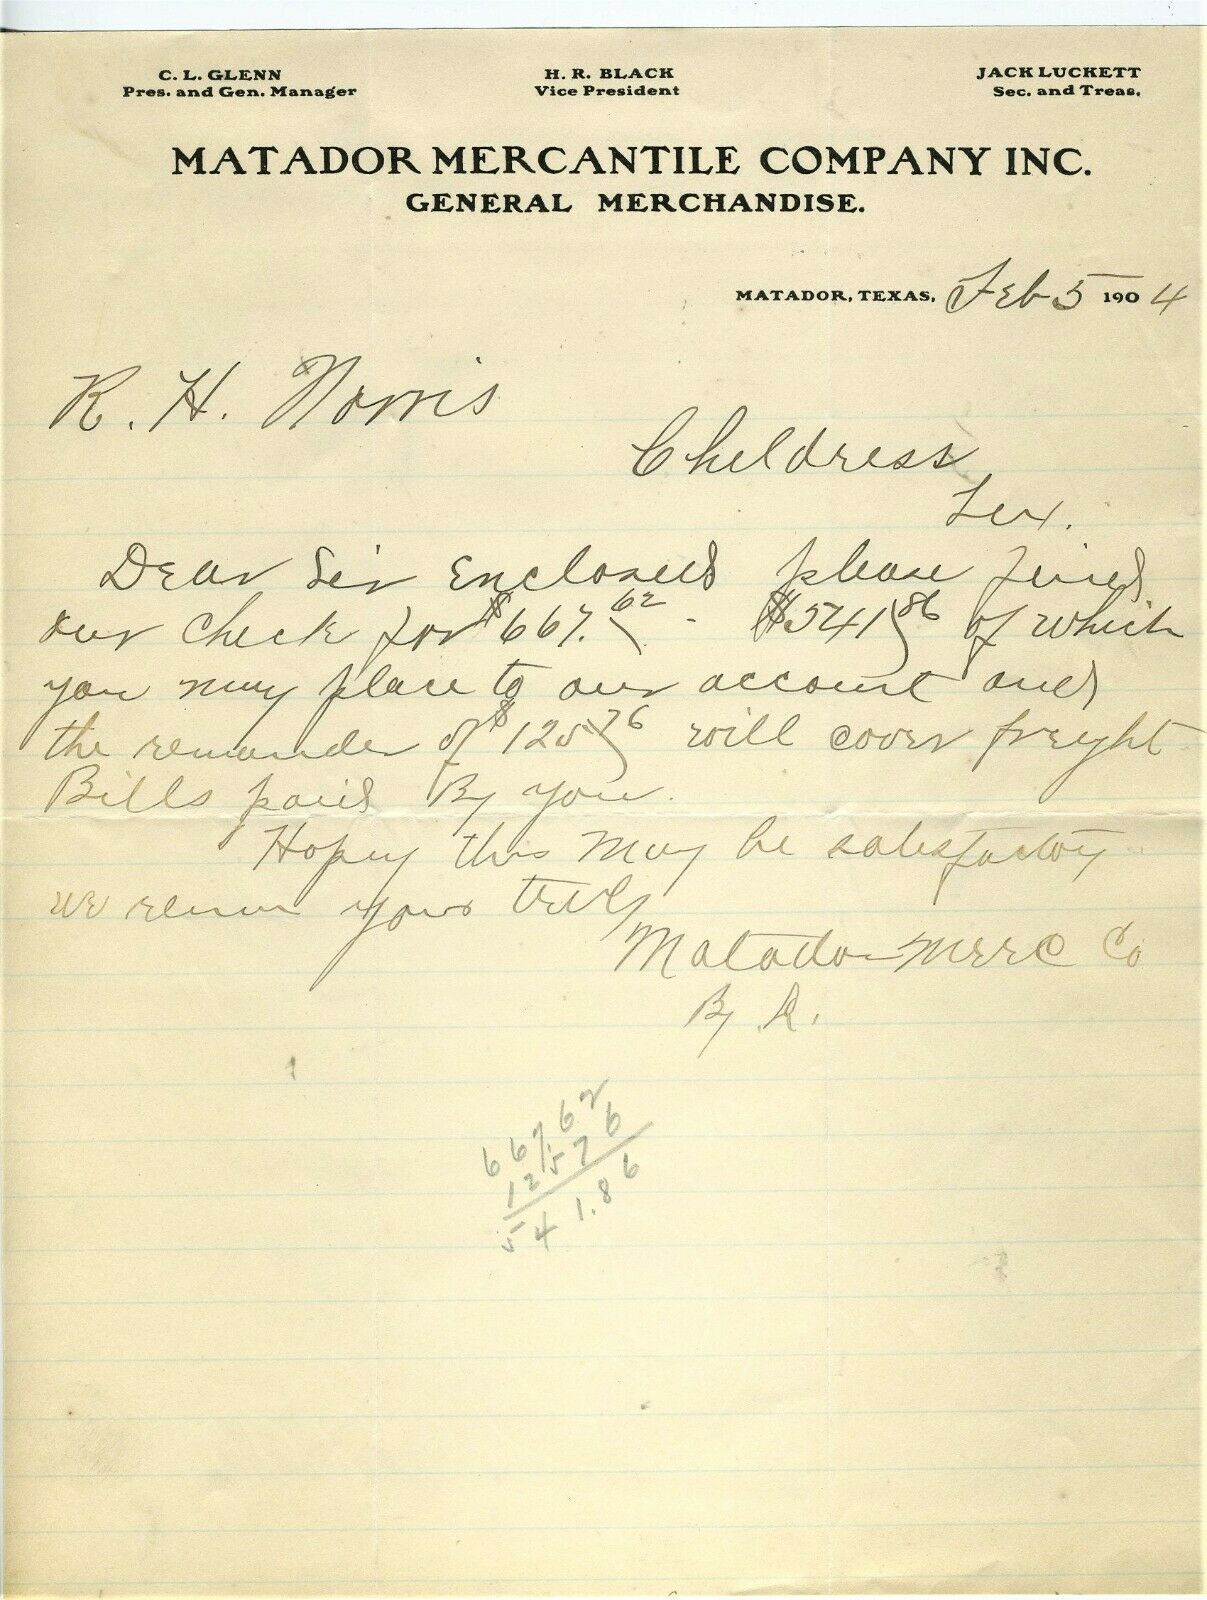 C. L. GLENN
Pres. and Gen. Manager
H. R. BLACK
Vice President
JACK LUCKETT
Sec. and Treas.
MATADOR MERCANTILE COMPANY INC.
GENERAL MERCHANDISE.
MATADOR, TEXAS, Feb 5 1904
R. H. Norris
Childress
Tex.
Dear Sir Enclosed please find
our check for $667.62 - $541 86 of which
you may place to our account and
the remander of $125 76 will cover freyht
Bills paid By you.
Hoping this May be satisfactory
we remain yours truly
Matador Merc Co
By R.
667.62
125 76
541.86